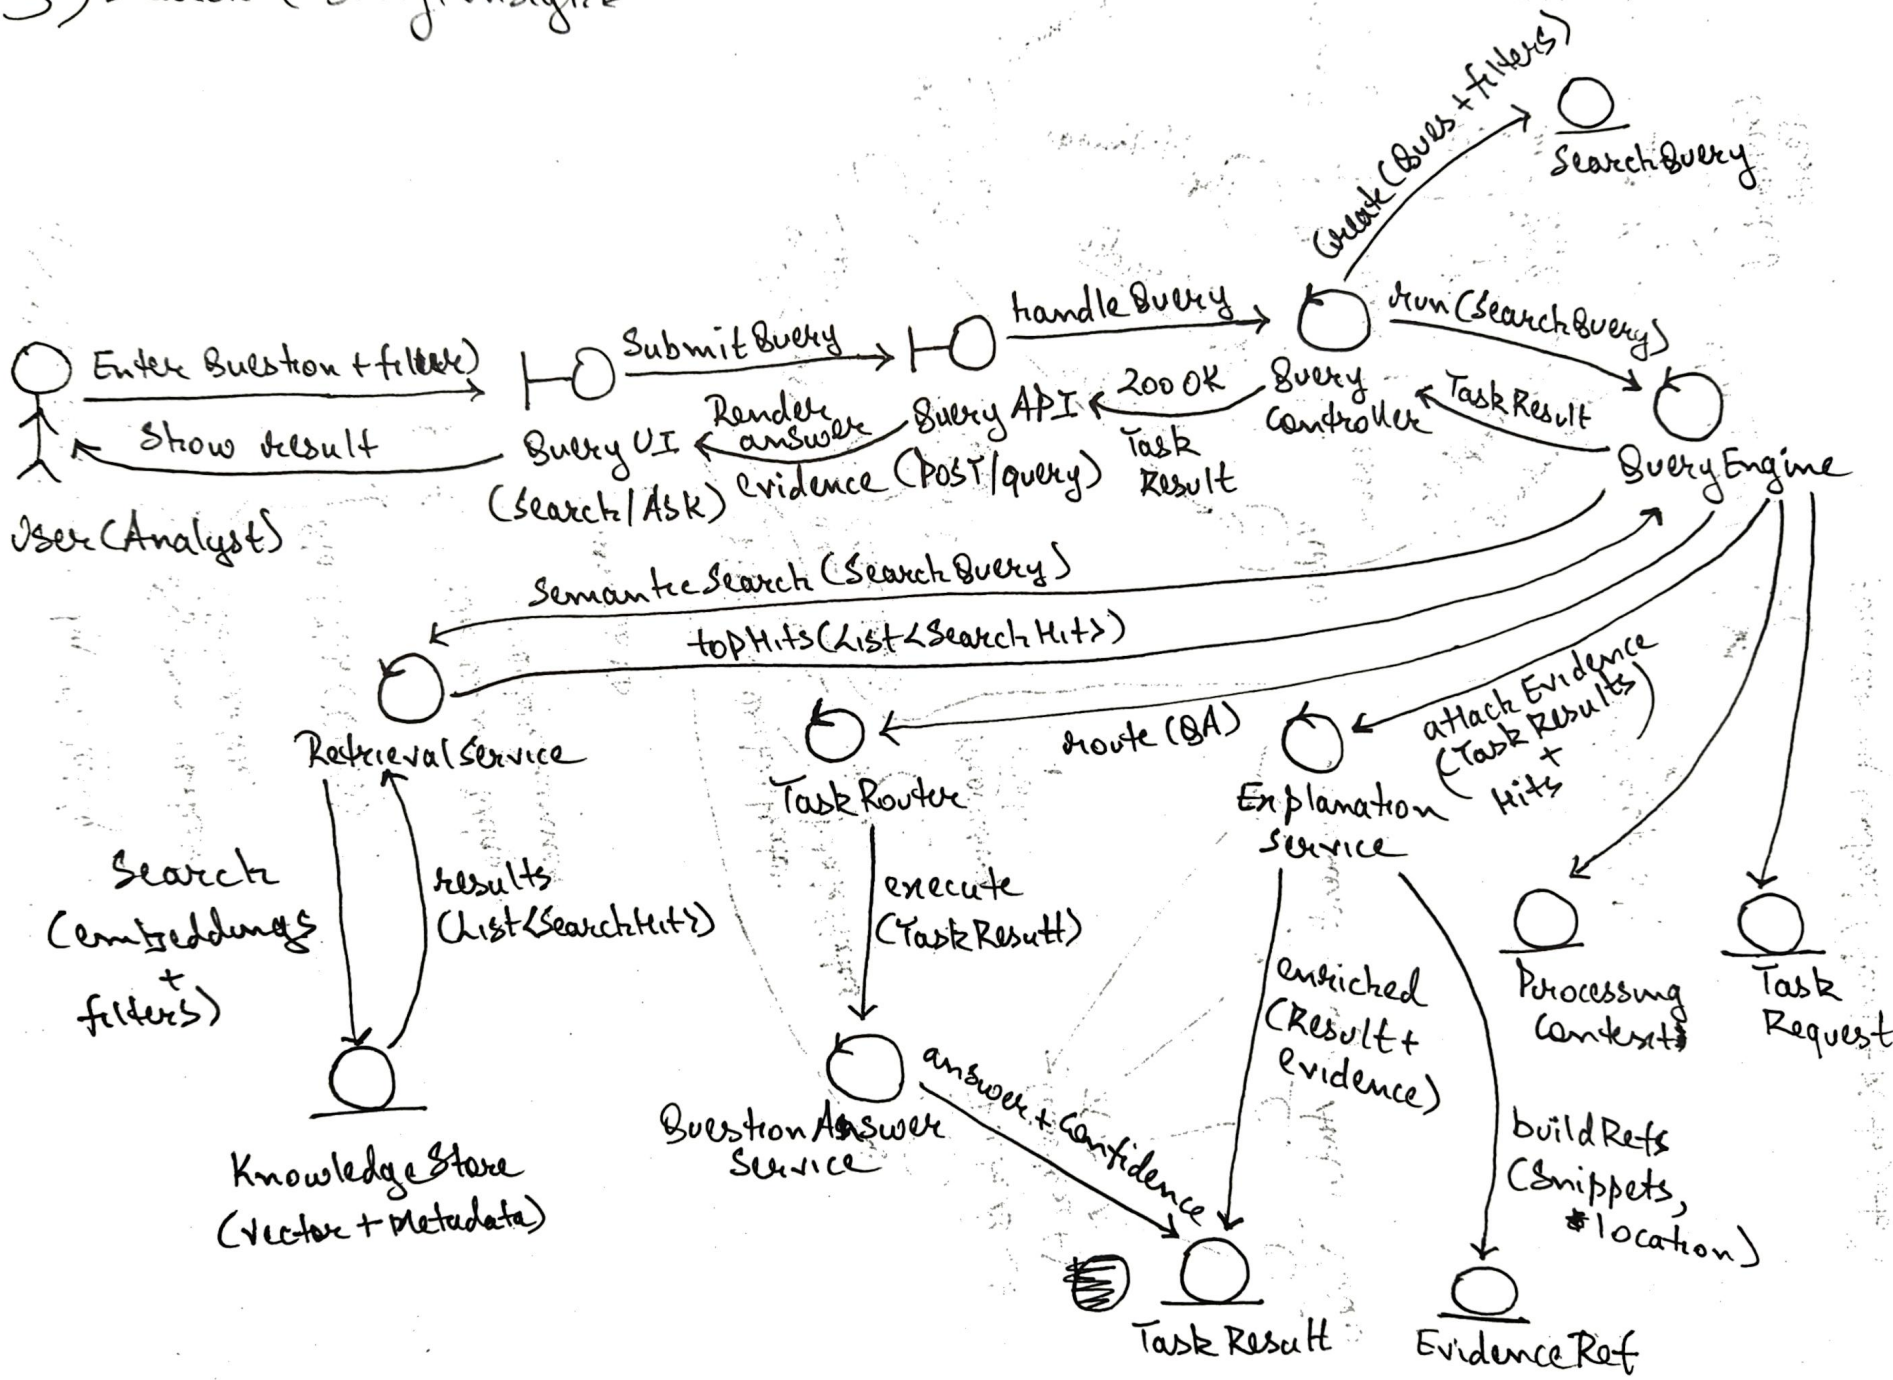 3)
create(Ques + filters)
SearchQuery
handleQuery
run(SearchQuery)
Enter Question + filter)
SubmitQuery
Show result
Query UI
(Search/Ask)
Render
answer
evidence
Query API
(POST/query)
200 OK
Task
Result
Query
Controller
TaskResult
QueryEngine
User(Analyst)
SemanticSearch(SearchQuery)
topHits(List<SearchHit>)
RetrievalService
route(QA)
TaskRouter
attach Evidence
(Task Results)
+
Hits
Explanation
Service
Search
(embeddings
+
filters)
results
(List<SearchHit>)
execute
(TaskResult)
enriched
(Result+
evidence)
Processing
Context
Task
Request
KnowledgeStore
(vector + Metadata)
QuestionAnswer
Service
answer + Confidence
buildRefs
(Snippets,
location)
TaskResult
EvidenceRef